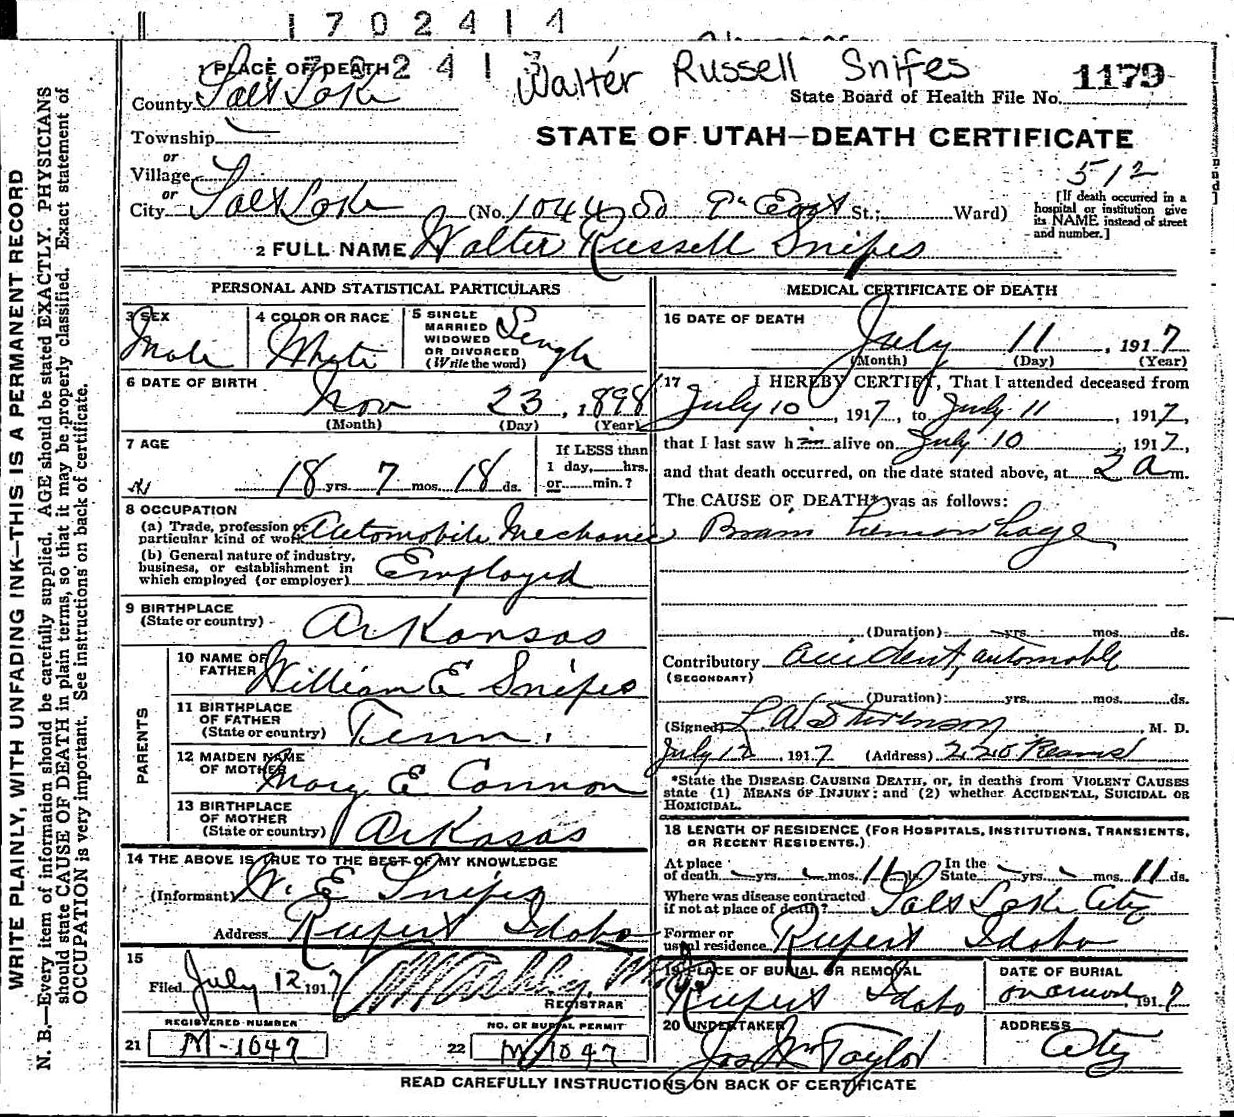 1 7 0 2 4 1 4
1 7 0 2 4 1 3
Walter Russell Snifes
1179
State Board of Health File No.
STATE OF UTAH—DEATH CERTIFICATE
512
1 PLACE OF DEATH
County Salt Lake
Township
or
Village
or
City Salt Lake (No. 1044 So 9th East St.; Ward)
[If death occurred in a hospital or institution give its NAME instead of street and number.]
2 FULL NAME Walter Russell Snipes
PERSONAL AND STATISTICAL PARTICULARS
3 SEX Male
4 COLOR OR RACE White
5 SINGLE MARRIED WIDOWED OR DIVORCED (Write the word) Single
6 DATE OF BIRTH
Nov 23, 1898
(Month) (Day) (Year)
7 AGE
18 yrs. 7 mos. 18 ds.
If LESS than 1 day, hrs. or min.?
8 OCCUPATION
(a) Trade, profession or particular kind of work Automobile Mechanic
(b) General nature of industry, business, or establishment in which employed (or employer) Employed
9 BIRTHPLACE (State or country) Arkansas
PARENTS
10 NAME OF FATHER William E Snipes
11 BIRTHPLACE OF FATHER (State or country) Tenn.
12 MAIDEN NAME OF MOTHER Mary E Connon
13 BIRTHPLACE OF MOTHER (State or country) Arkasas
14 THE ABOVE IS TRUE TO THE BEST OF MY KNOWLEDGE
(Informant) W. E Snipes
Address Rupert Idaho
15
Filed July 12 1917
REGISTRAR
REGISTERED NUMBER
21 M-1047
NO. OF BURIAL PERMIT
22 M-1047
MEDICAL CERTIFICATE OF DEATH
16 DATE OF DEATH
July 11, 1917
(Month) (Day) (Year)
17 I HEREBY CERTIFY, That I attended deceased from
July 10 1917, to July 11, 1917,
that I last saw h im alive on July 10, 1917,
and that death occurred, on the date stated above, at 2 a m.
The CAUSE OF DEATH* was as follows:
Brain hemorrhage
(Duration) yrs. mos. ds.
Contributory accident, automobile
(SECONDARY)
(Duration) yrs. mos. ds.
(Signed) L A Stevenson M. D.
July 12 1917 (Address) 220
*State the DISEASE CAUSING DEATH, or, in deaths from VIOLENT CAUSES state (1) MEANS OF INJURY; and (2) whether ACCIDENTAL, SUICIDAL OR HOMICIDAL.
18 LENGTH OF RESIDENCE (FOR HOSPITALS, INSTITUTIONS, TRANSIENTS, OR RECENT RESIDENTS.)
At place of death yrs. mos. 11 ds. In the State yrs. mos. 11 ds.
Where was disease contracted if not at place of death? Salt Lake City
Former or usual residence Rupert Idaho
19 PLACE OF BURIAL OR REMOVAL
Rupert Idaho
DATE OF BURIAL
1917
20 UNDERTAKER
Jos Wm Taylor
ADDRESS
City
READ CAREFULLY INSTRUCTIONS ON BACK OF CERTIFICATE
WRITE PLAINLY, WITH UNFADING INK—THIS IS A PERMANENT RECORD
N. B.—Every item of information should be carefully supplied. AGE should be stated EXACTLY. PHYSICIANS
should state CAUSE OF DEATH in plain terms, so that it may be properly classified. Exact statement of
OCCUPATION is very important. See instructions on back of certificate.